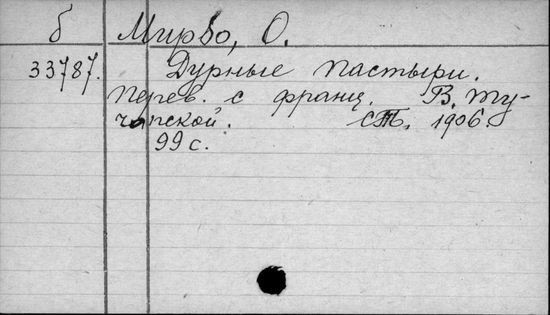 б Мирбо, О.
33787. Дурные пастыри.
Перев. с франц. В. Ту-
чапской. СПб. 1906.
99 с.